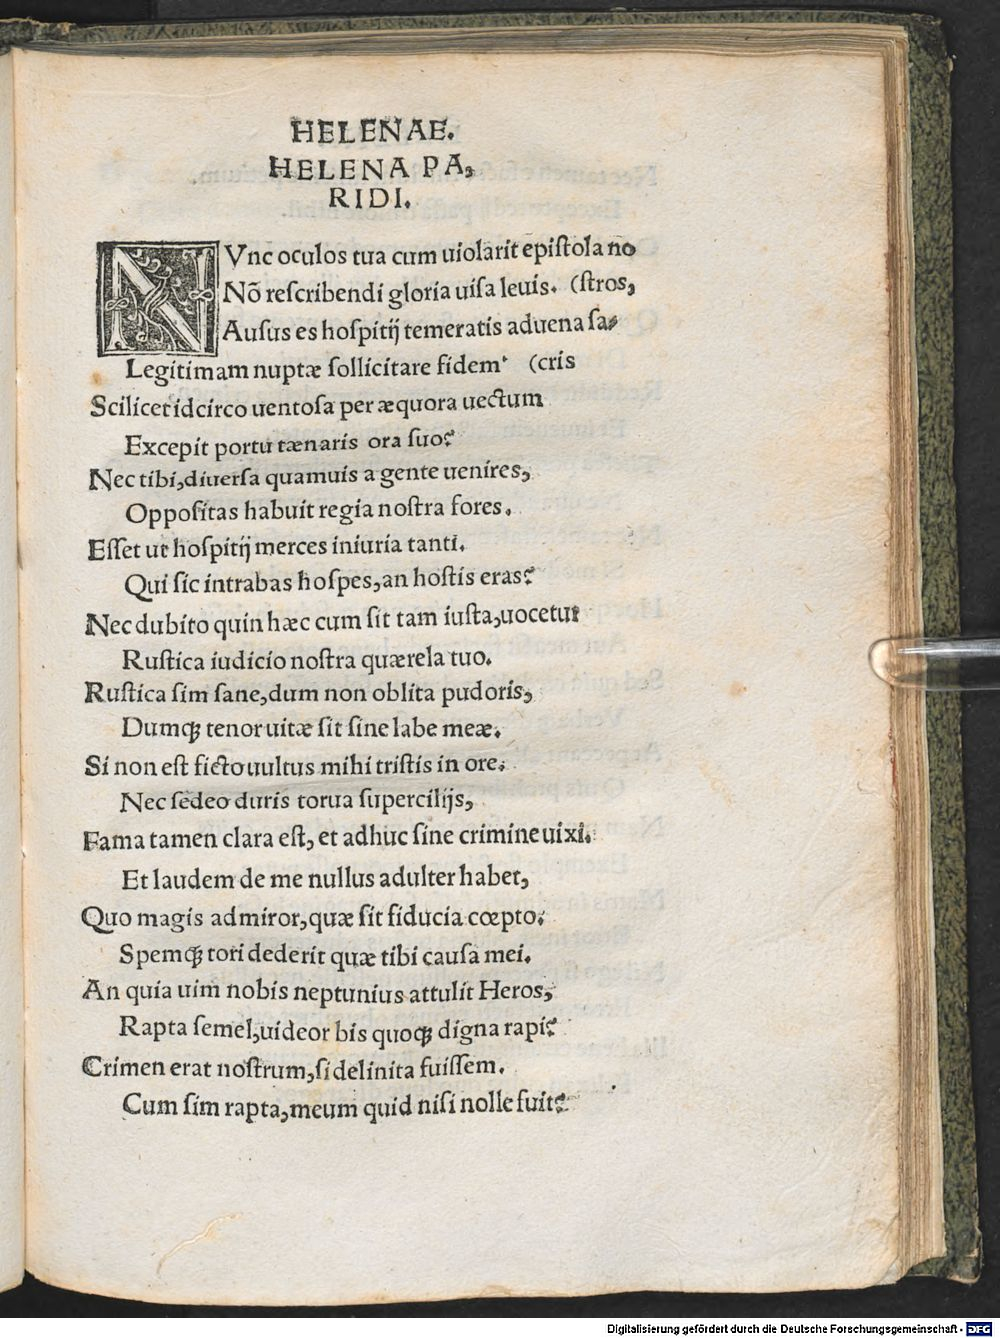 HELENAE.
HELENA PA,
RIDI.
NVnc oculos tua cum uiolarit epistola no
Nõ rescribendi gloria uisa leuis. (stros,
Ausus es hospitij temeratis aduena sa-
Legitimam nuptæ sollicitare fidem· (cris
Scilicet idcirco uentosa per æquora uectum
Excepit portu tænaris ora suo?
Nec tibi, diuersa quamuis a gente uenires,
Oppositas habuit regia nostra fores.
Esset ut hospitij merces iniuria tanti.
Qui sic intrabas hospes, an hostis eras?
Nec dubito quin hæc cum sit tam iusta, uocetur
Rustica iudicio nostra quærela tuo.
Rustica sim sane, dum non oblita pudoris,
Dumq; tenor uitæ sit sine labe meæ.
Si non est ficto uultus mihi tristis in ore.
Nec sedeo duris torua supercilijs,
Fama tamen clara est, et adhuc sine crimine uixi.
Et laudem de me nullus adulter habet,
Quo magis admiror, quæ sit fiducia cœpto.
Spemq; tori dederit quæ tibi causa mei.
An quia uim nobis neptunius attulit Heros,
Rapta semel, uideor bis quoq; digna rapi?
Crimen erat nostrum, si delinita fuissem.
Cum sim rapta, meum quid nisi nolle fuit?
Digitalisierung gefördert durch die Deutsche Forschungsgemeinschaft - DFG